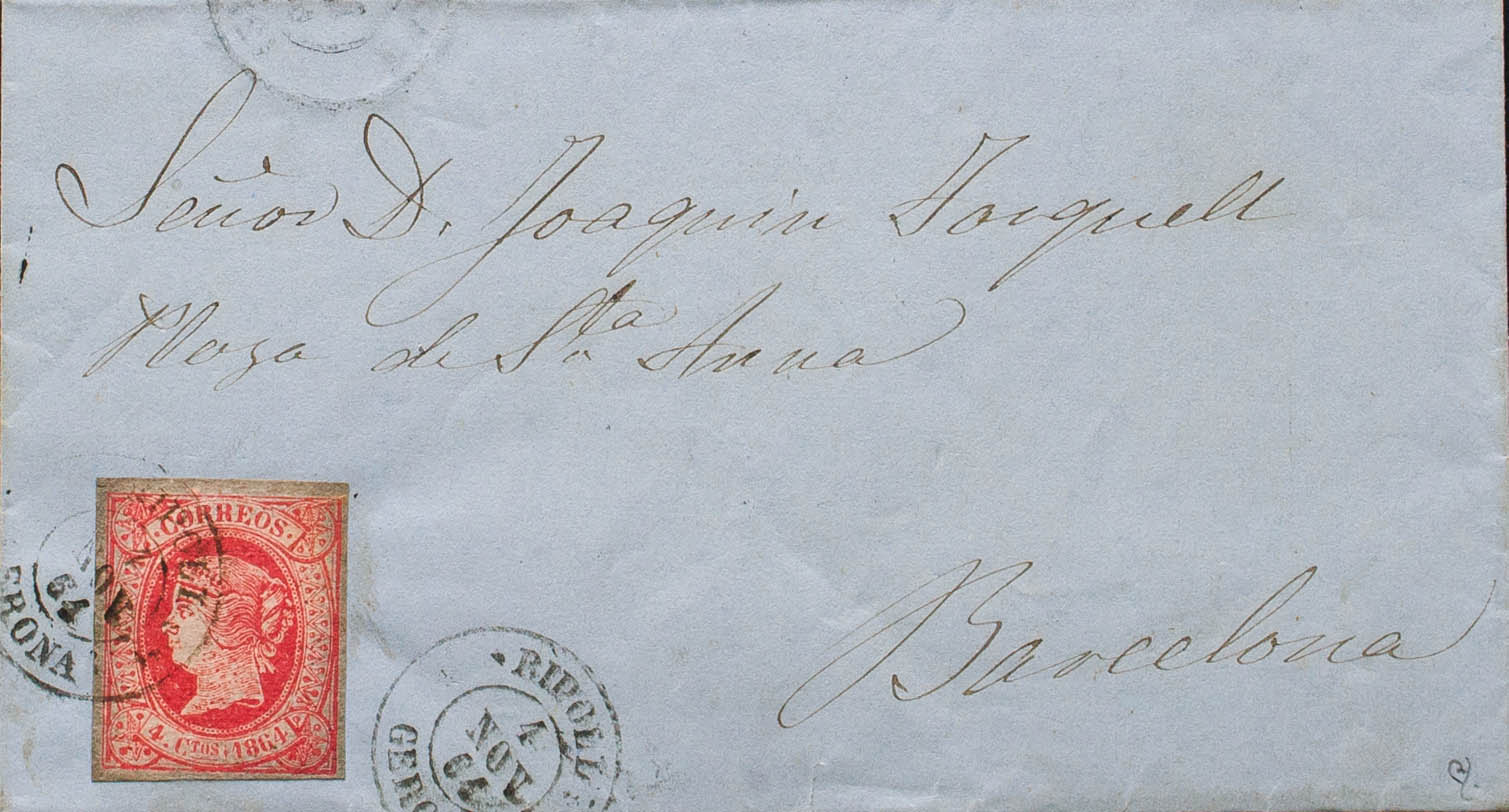 Señor D. Joaquin Torquell
Plaza de Sta Anna
Barcelona
CORREOS
4 CTOS 1864
RIPOLL
NOV
64
GERONA
RIPOLL
4
NOV
64
GERO